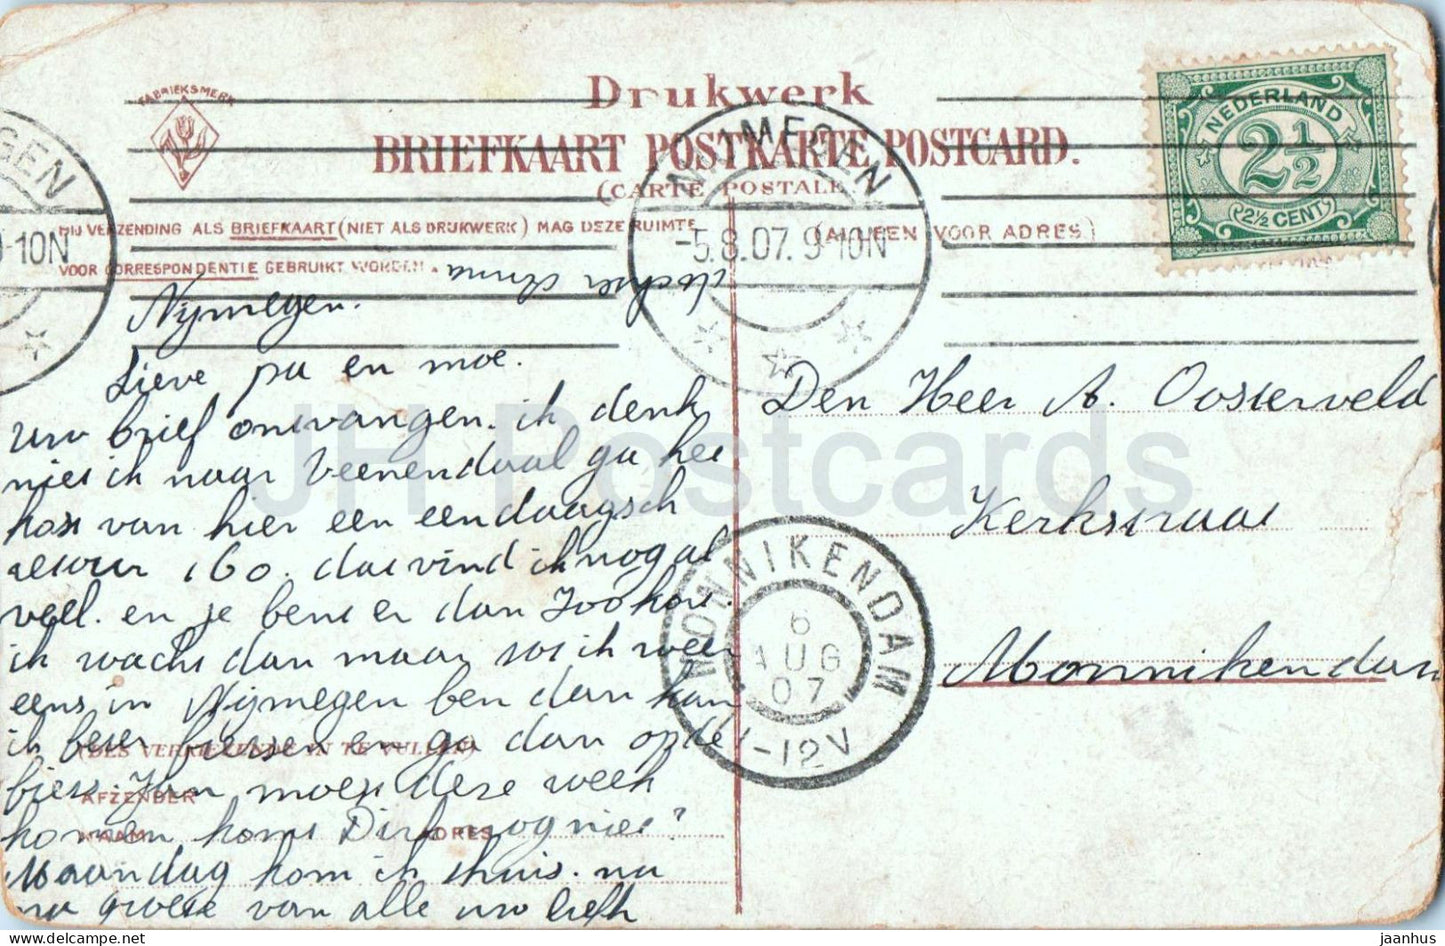 Drukwerk
FABRIEKSMERK
BRIEFKAART POSTKARTE POSTCARD.
(CARTE POSTALE)
BIJ VERZENDING ALS BRIEFKAART (NIET ALS DRUKWERK) MAG DEZE RUIMTE
VOOR CORRESPONDENTIE GEBRUIKT WORDEN.
(ALLEEN VOOR ADRES.)
NEDERLAND
2½
2½ CENT
NIJMEGEN
-5.8.07. 9-10N
GEN
9-10N
dochter Anna
Nijmegen.
Lieve pa en moe.
uw brief ontvangen. ik denk
niet ik naar Veenendaal ga het
kost van hier een eendaagsch
retour 160. dat vind ik nog al
veel. en je bent er dan zoo kort.
ik wacht dan maar tot ik weer
eens in Nijmegen ben dan kan
ik beter fietsen en ga dan op de
fiets. Jan moest deze week
komen komt Dirk nog niet?
Maandag kom ik thuis. na
na groete van alle uw liefh
(DES VERKIEZENDE IN TE VULLEN)
AFZENDER
NAAM
ADRES
Den Heer A. Oosterveld
Kerkstraat
Monnikendam
MONNIKENDAM
6
AUG
07
-12V
JH Postcards
www.delcampe.net
jaanhus